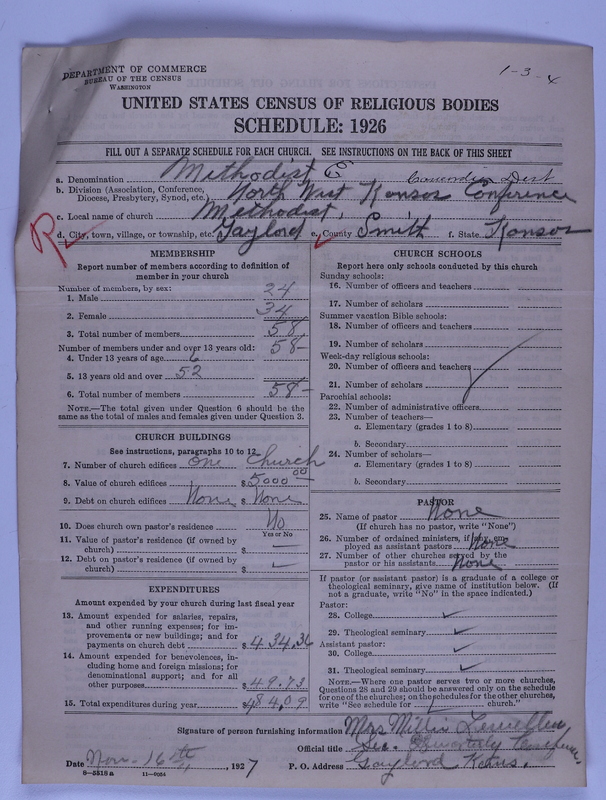 DEPARTMENT OF COMMERCE
BUREAU OF THE CENSUS
WASHINGTON
1-3-4
UNITED STATES CENSUS OF RELIGIOUS BODIES
SCHEDULE: 1926
FILL OUT A SEPARATE SCHEDULE FOR EACH CHURCH. SEE INSTRUCTIONS ON THE BACK OF THIS SHEET
a. Denomination Methodist E Concordia Dist
b. Division (Association, Conference, Diocese, Presbytery, Synod, etc.) North West Kansas Conference
c. Local name of church Methodist,
R
d. City, town, village, or township, etc. Gaylord e. County Smith f. State Kansas
MEMBERSHIP
Report number of members according to definition of member in your church
Number of members, by sex:
1. Male 24
2. Female 34
3. Total number of members 58
Number of members under and over 13 years old: 58
4. Under 13 years of age 6
5. 13 years old and over 52
6. Total number of members 58
NOTE.—The total given under Question 6 should be the same as the total of males and females given under Question 3.
CHURCH BUILDINGS
See instructions, paragraphs 10 to 12
7. Number of church edifices one Church
8. Value of church edifices $ 5000 00
9. Debt on church edifices None $ None
10. Does church own pastor's residence No
Yes or No
11. Value of pastor's residence (if owned by church) $
12. Debt on pastor's residence (if owned by church) $
EXPENDITURES
Amount expended by your church during last fiscal year
13. Amount expended for salaries, repairs, and other running expenses; for improvements or new buildings; and for payments on church debt $ 434.36
14. Amount expended for benevolences, including home and foreign missions; for denominational support; and for all other purposes $ 49.73
15. Total expenditures during year $ 484.09
CHURCH SCHOOLS
Report here only schools conducted by this church
Sunday schools:
16. Number of officers and teachers
17. Number of scholars
Summer vacation Bible schools:
18. Number of officers and teachers
19. Number of scholars
Week-day religious schools:
20. Number of officers and teachers
21. Number of scholars
Parochial schools:
22. Number of administrative officers
23. Number of teachers—
a. Elementary (grades 1 to 8)
b. Secondary
24. Number of scholars—
a. Elementary (grades 1 to 8)
b. Secondary
PASTOR
25. Name of pastor None
(If church has no pastor, write "None")
26. Number of ordained ministers, if any, employed as assistant pastors None
27. Number of other churches served by the pastor or his assistants None
If pastor (or assistant pastor) is a graduate of a college or theological seminary, give name of institution below. (If not a graduate, write "No" in the space indicated.)
Pastor:
28. College
29. Theological seminary
Assistant pastor:
30. College
31. Theological seminary
NOTE.—Where one pastor serves two or more churches, Questions 28 and 29 should be answered only on the schedule for one of the churches; on the schedules for the other churches, write "See schedule for church."
Signature of person furnishing information Mrs Lewellen
Official title Sec. Quarterly
Date Nov. 16th, 1927 P. O. Address Gaylord Kans.
8-5518a 11-9054